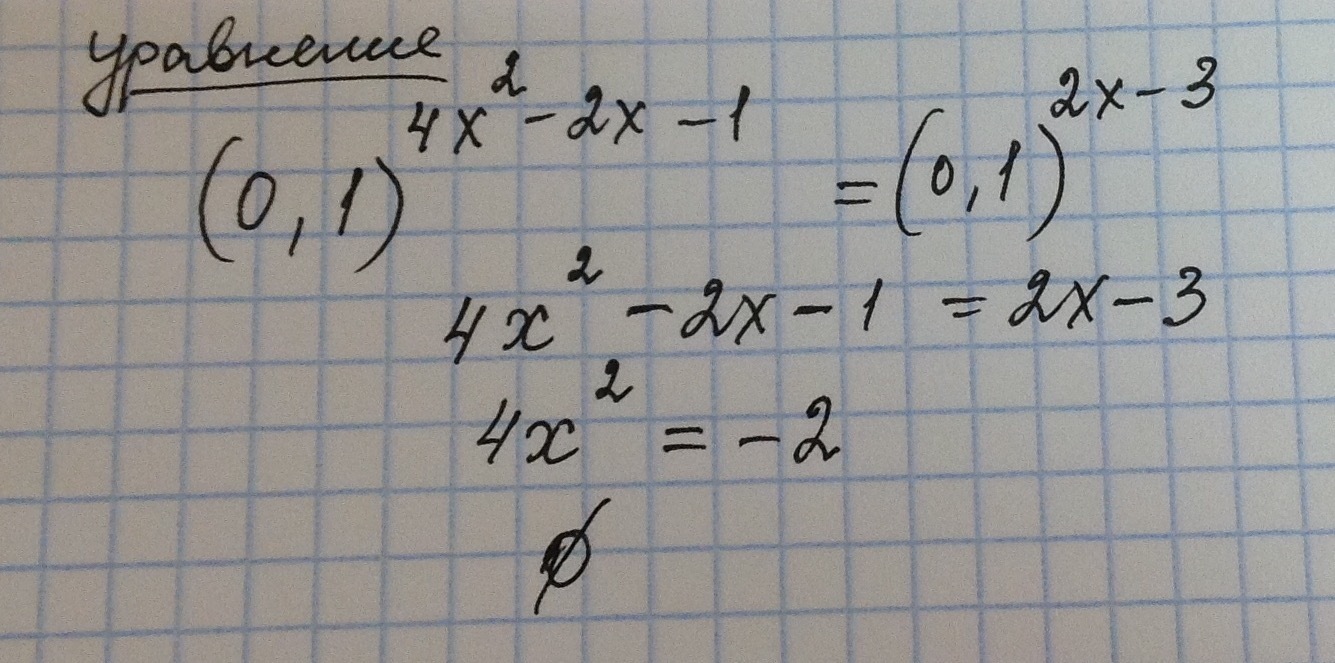 уравнение
(0,1)^{4x² - 2x - 1} = (0,1)^{2x - 3}
4x² - 2x - 1 = 2x - 3
4x² = -2
∅